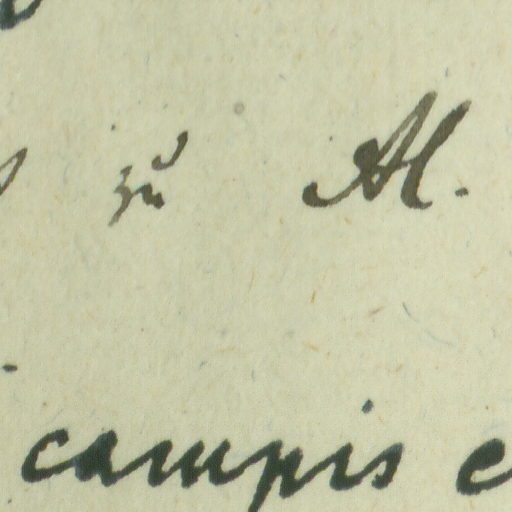 zu Al.
campis